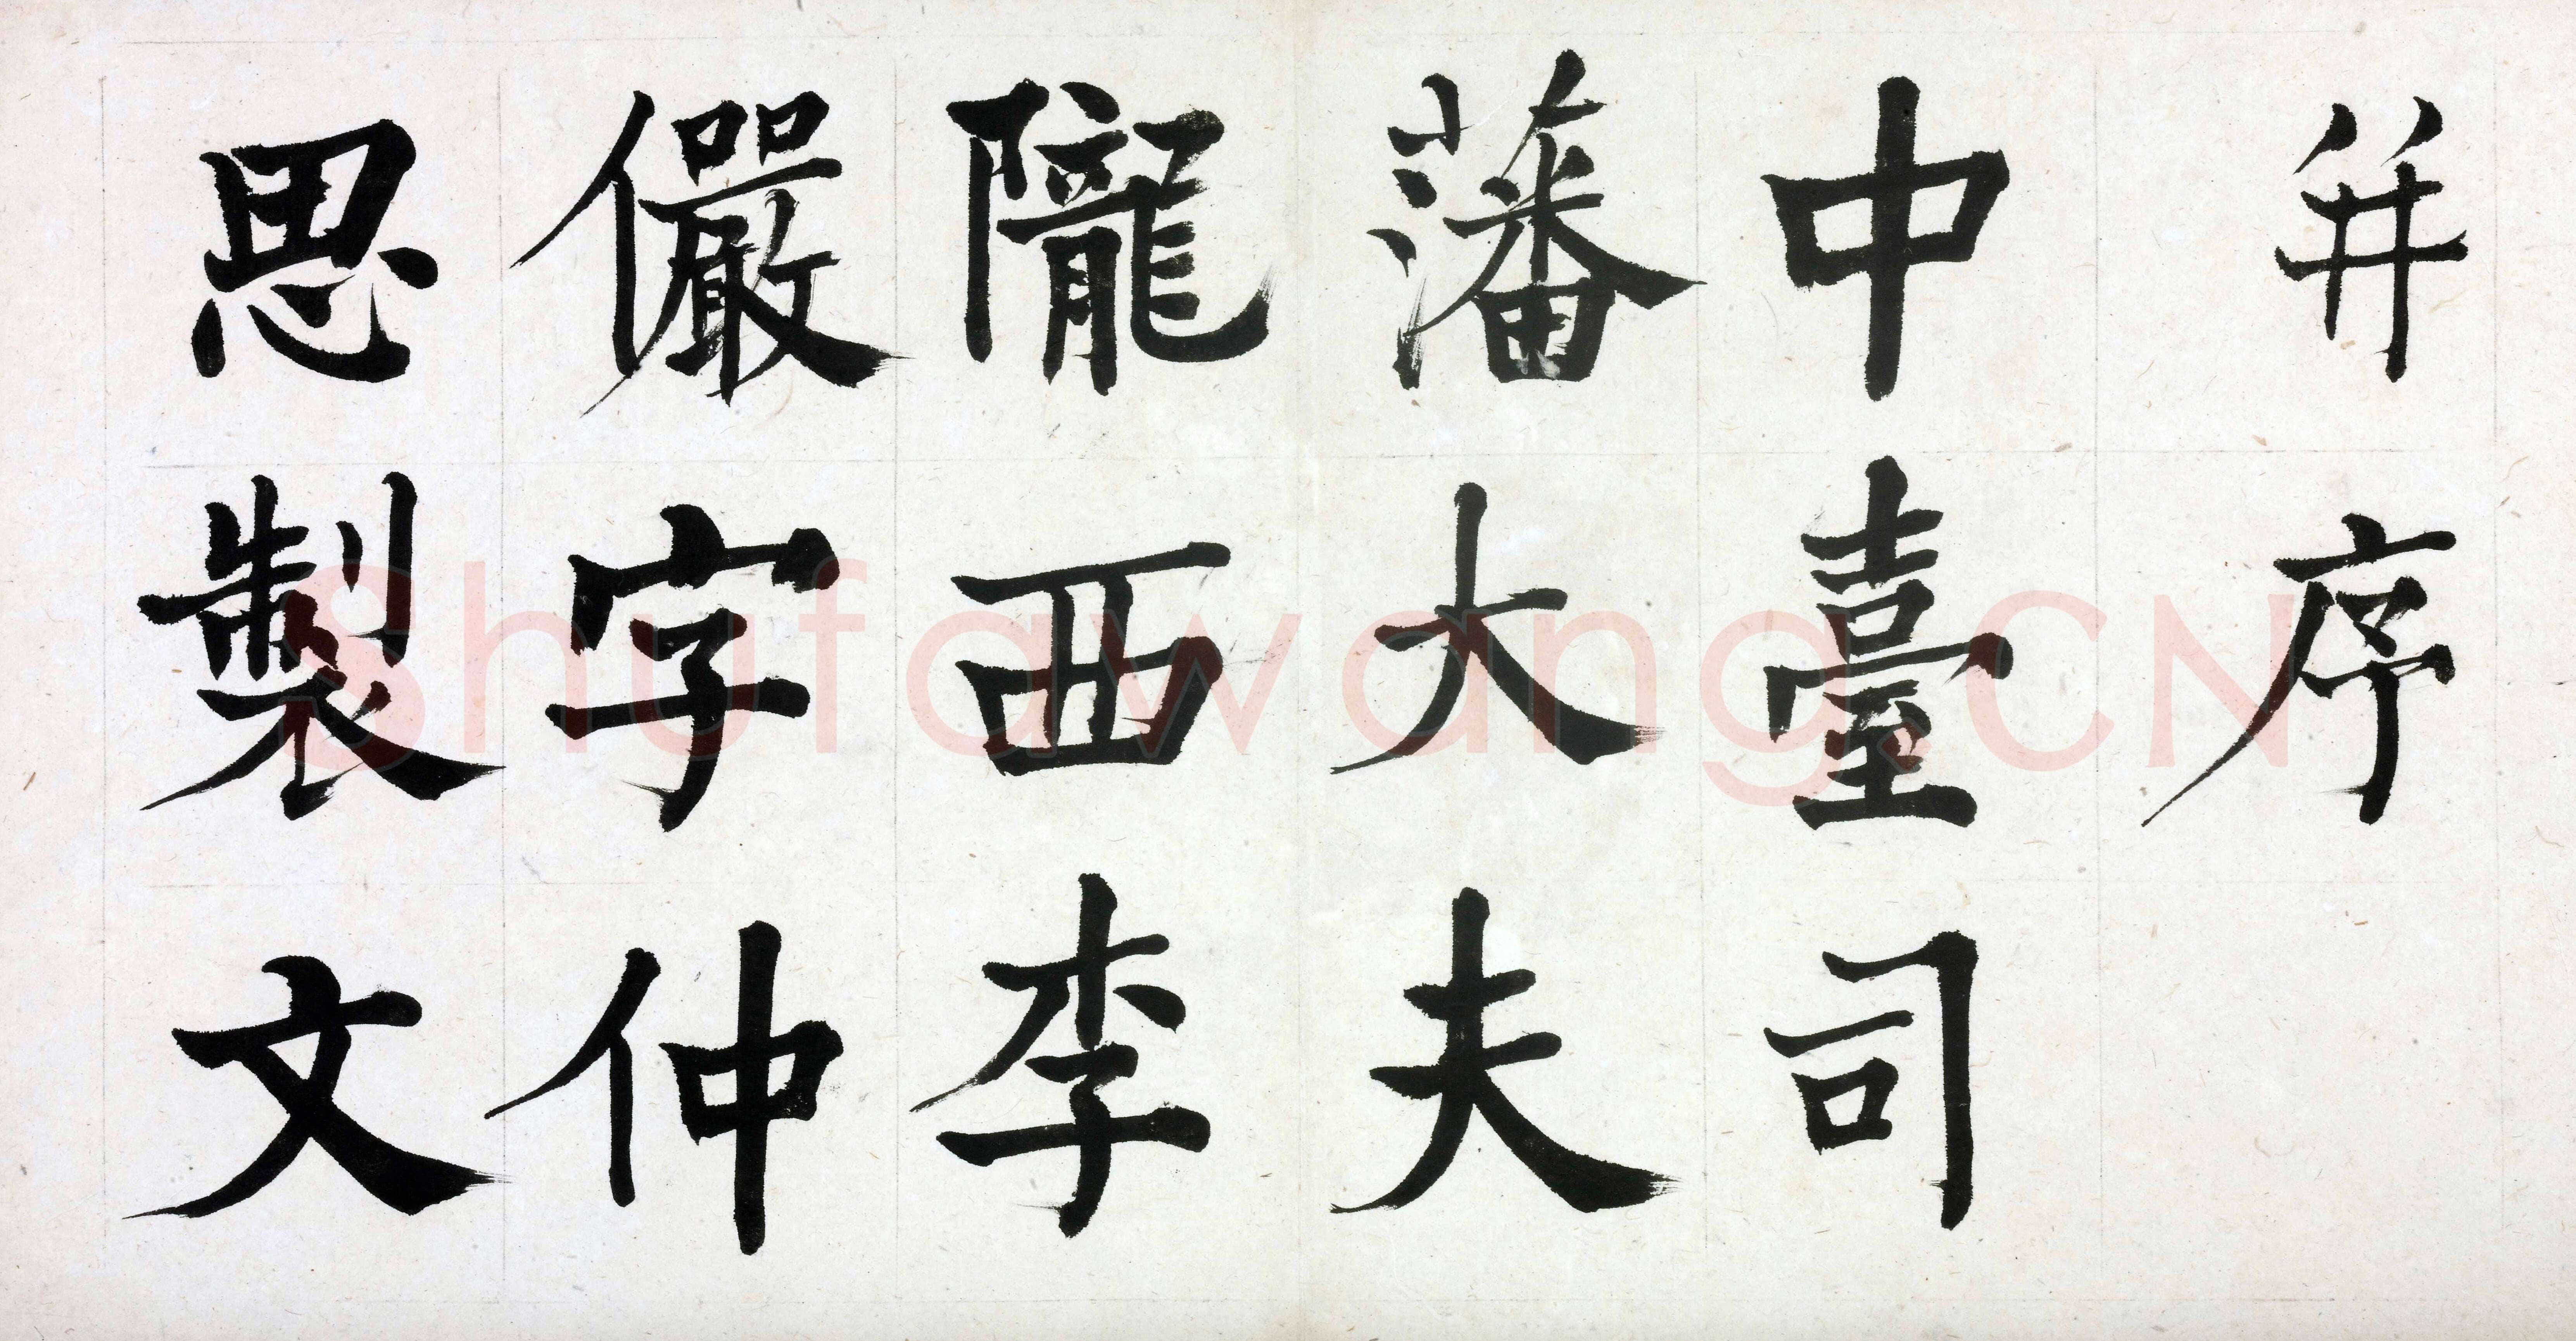 并序
中臺司
藩大夫
隴西李
儼字仲
思製文
Shufawang.CN